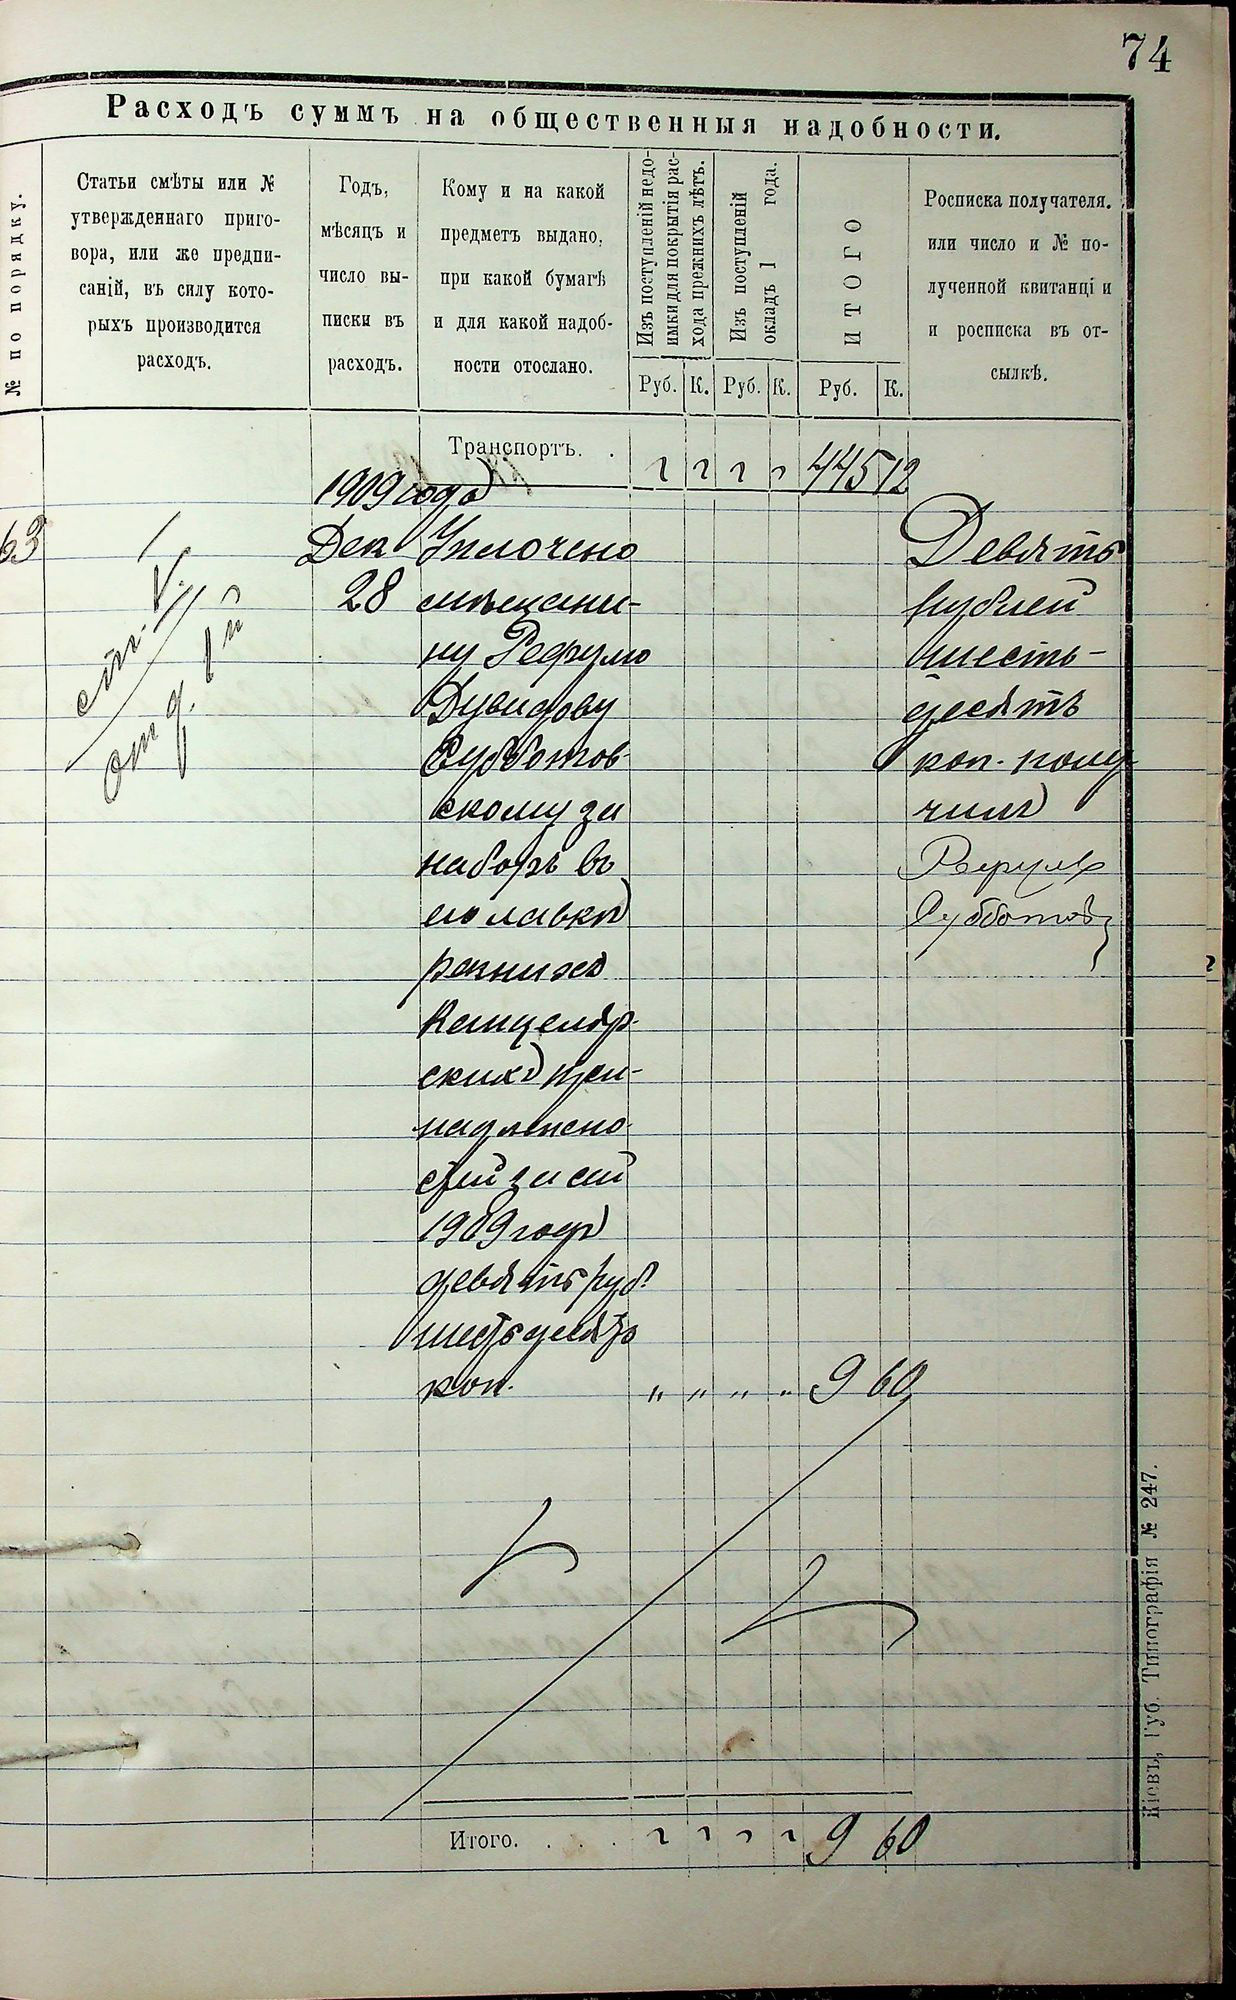 74
Расходъ суммъ на общественныя надобности.
№ по порядку.
Статьи смѣты или №
утвержденнаго приго-
вора, или же предпи-
саній, въ силу кото-
рыхъ производится
расходъ.
Годъ,
мѣсяцъ и
число вы-
писки въ
расходъ.
Кому и на какой
предметъ выдано,
при какой бумагѣ
и для какой надоб-
ности отослано.
Изъ поступленій недо-
имки для покрытія рас-
хода прежнихъ лѣтъ.
Изъ поступленій
окладъ 1 года.
ИТОГО
Росписка получателя.
или число и № по-
лученной квитанціи
и росписка въ от-
сылкѣ.
Руб. К. Руб. К. Руб. К.
Транспортъ. . 445 12
1909 года
63
ст. V.
отд. 1й
Дек
28
Уплочено
мѣщани-
ну Рефулю
Дувидову
Субботов-
скому за
наборъ въ
его лавкѣ
разныхъ
Канцеляр-
скихъ при-
надлежно-
стей за сей
1909 годъ
девять руб.
шестьдесятъ
коп. " " " " 9 60
Девять
рублей
шесть-
десятъ
коп. полу-
чилъ
Рефулъ
Субботовс
Итого. . . . 9 60
Кіевъ, Губ. Типографія № 247.